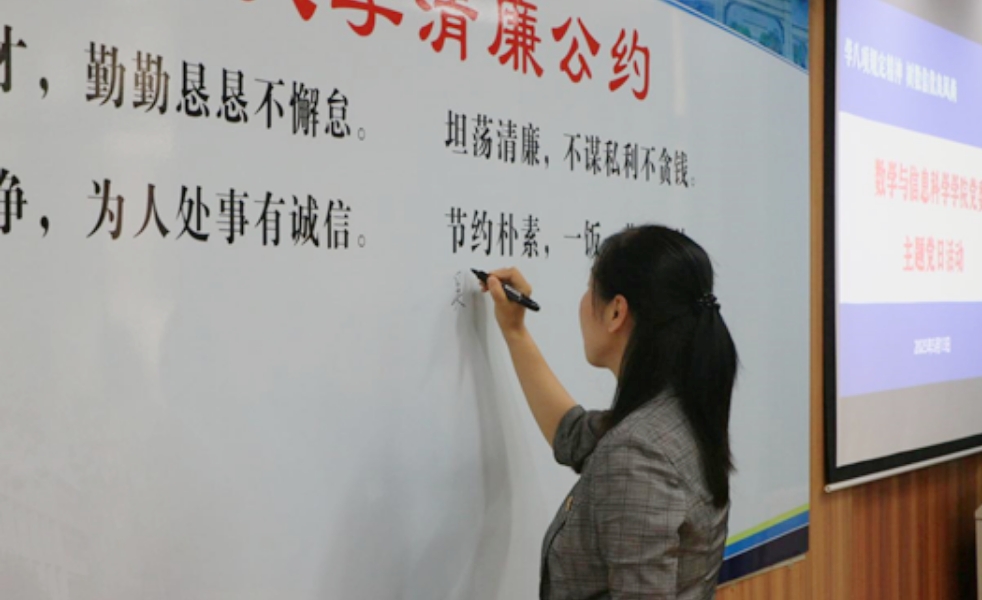 大学清廉公约
才，勤勤恳恳不懈怠。
坦荡清廉，不谋私利不贪钱。
净，为人处事有诚信。
节约朴素，一饭
学八项规定精神 树勤俭清廉风尚
数学与信息科学学院党
主题党日活动